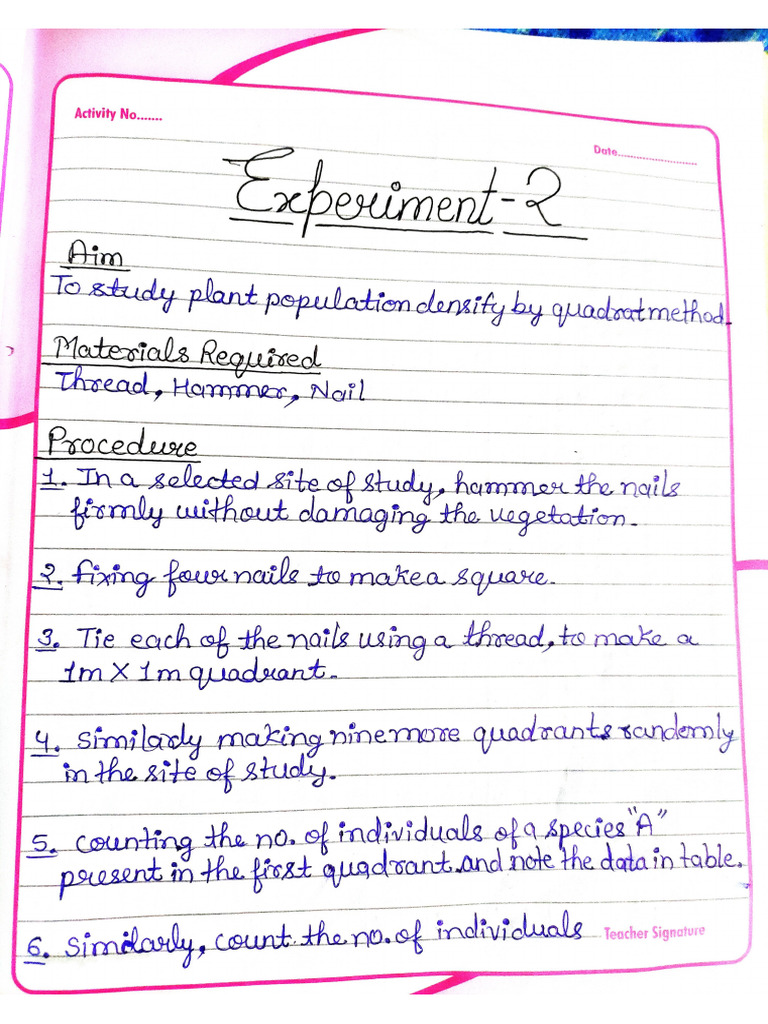 Activity No.......
Date..........................
Experiment-2
Aim
To study plant population densify by quadrat method.
Materials Required
Thread, Hammer, Nail
Procedure
1. In a selected site of study, hammer the nails
firmly without damaging the vegetation.
2. fixing four nails to make a square.
3. Tie each of the nails using a thread, to make a
1m X 1m quadrant.
4. Similarly making nine more quadrants randomly
in the site of study.
5. Counting the no. of individuals of a species "A"
present in the first quadrant and note the data in table.
6. Similarly, count the no. of individuals
Teacher Signature